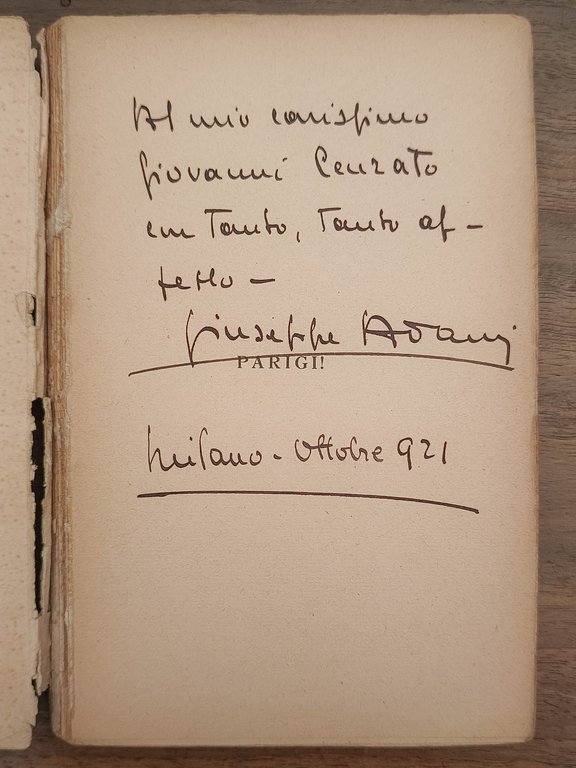 Al mio carissimo
Giovanni Cenzato
con tanto, tanto af-
fetto -
Giuseppe Adami
PARIGI!
Milano - Ottobre 921